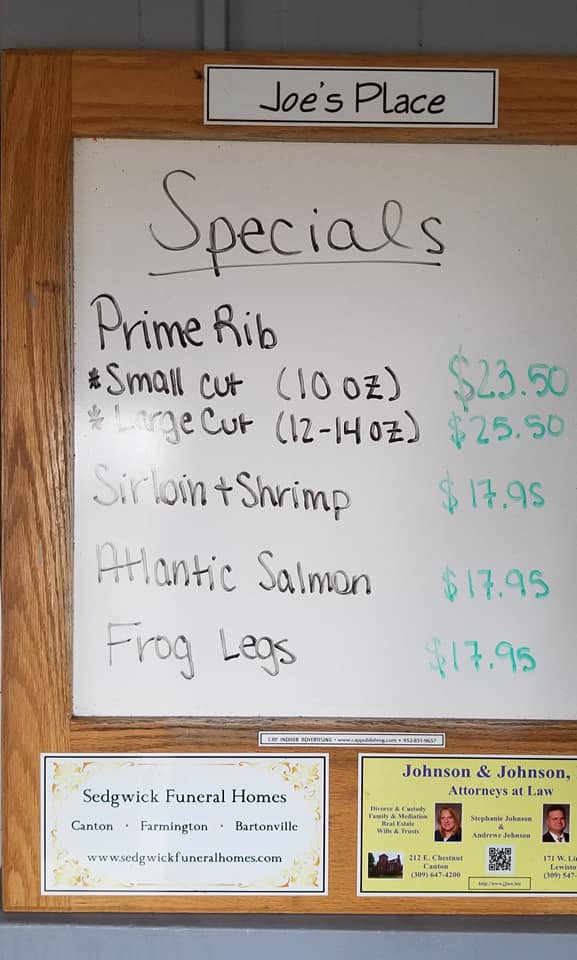 Joe's Place
Specials
Prime Rib
*Small cut (10 oz) $23.50
*Large Cut (12-14 oz) $25.50
Sirloin + Shrimp $17.95
Atlantic Salmon $17.95
Frog Legs $17.95
CAP INDOOR ADVERTISING • www.cappublishing.com • 952-831-9657
Sedgwick Funeral Homes
Canton · Farmington · Bartonville
www.sedgwickfuneralhomes.com
Johnson & Johnson,
Attorneys at Law
Divorce & Custody
Family & Mediation
Real Estate
Wills & Trusts
Stephanie Johnson
&
Andrewe Johnson
212 E. Chestnut
Canton
(309) 647-4200
171 W. Li
Lewisto
(309) 547-